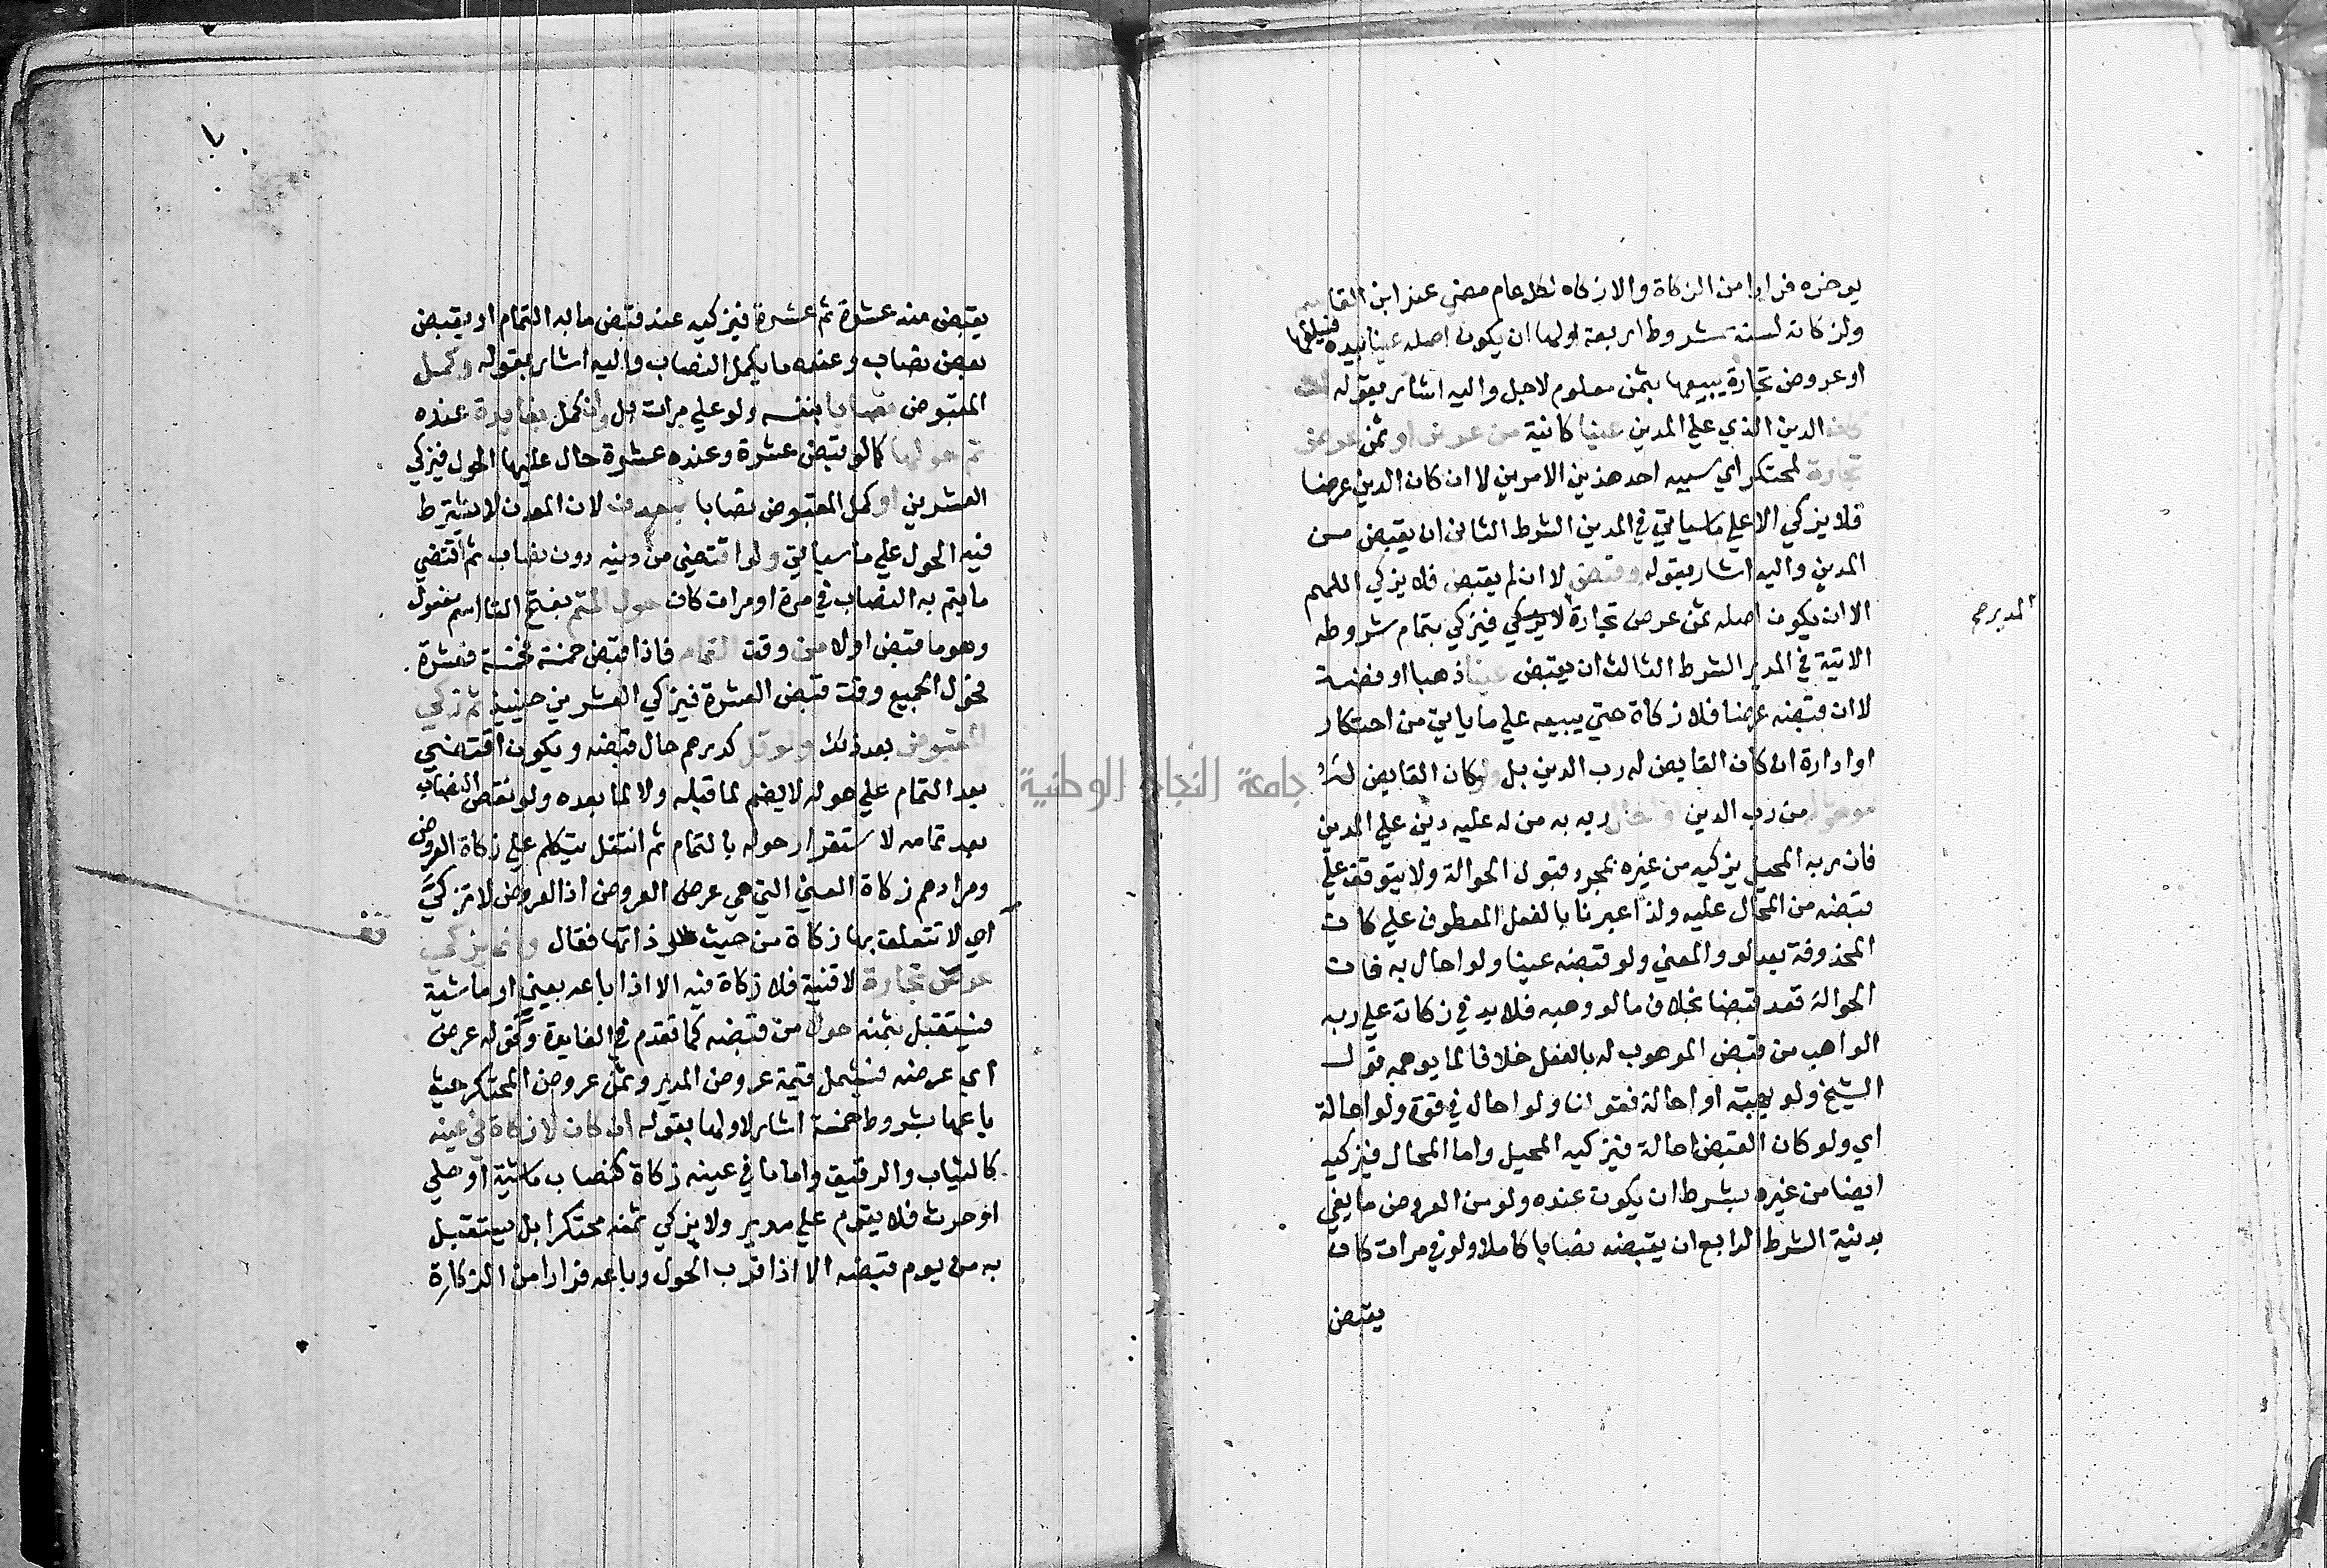 يوخره فرارا من الزكاة والا زكاه لكل عام مضي عند ابن القاسم
ولزكاته لسنة شروط اربعة اولها ان يكون اصله عينا بيده فيسلفها
او عروض تجارة يبيعها بثمن معلوم لاجل واليه اشار بقوله
كان الدين الذي علي المدين عينا كاينة من عرض او ثمن عرض
تجارة لمحتكر اي سببه احد هذين الامرين لا ان كان الدين عرضا
فلا يزكي الا علي ما سياتي في المدير الشرط الثاني ان يقبض من
المدين واليه اشار بقوله وقبض لا ان لم يقبض فلا يزكي اللهم
الا ان يكون اصله ثمن عرض تجارة لا فيزكي بتمام شروطه
المدير صح
الاتية في المدير الشرط الثالث ان يقبض عينا ذهبا او فضة
لا ان قبضه عرضا فلا زكاة حتي يبيعه علي ما ياتي من احتكار
او ادارة ان كان القابض له رب الدين بل ولو كان القابض له
موهوبا له من رب الدين او احال ربه به من له عليه دين علي المدين
فان ربه المحيل يزكيه من غيره بمجرد قبول الحوالة ولا يتوقف علي
قبضه من المحال عليه ولذا عبرنا بالفعل المعطوف علي كان
المحذوفة بعد لو والمعني ولو قبضه عينا ولو احال به فان
الحوالة تعد قبضا بخلاف ما لو وهبه فلا بد في زكاته علي ربه
الواهب من قبض الموهوب له بالفعل خلافا لما يوهمه قول
الشيخ ولو بهبة او احالة فقولنا ولو احال في قوة ولو احالة
اي ولو كان القبض احالة فيزكيه المحيل واما المحال فيزكيه
ايضا من غيره بشرط ان يكون عنده ولو من العروض ما يفي
بدينه الشرط الرابع ان يقبضه نصابا كاملا ولو في مرات كان
يقبض
يقبض منه عشرة ثم عشرة فيزكيه عند قبض ما به التمام او يقبض
بعض نصاب وعنده ما يكمل النصاب واليه اشار بقوله وكمل
المقبوض نصابا بنفسه ولو علي مرات بل وان كمل بفايدة عنده
تم حولها كما لو قبض عشرة وعنده عشرة حال عليها الحول فيزكي
العشرين او كمل المقبوض نصابا بمعدن لان المعدن لا يشترط
فيه الحول علي ما سياتي ولو اقتضي من دينه دون نصاب ثم اقتضي
ما يتم به النصاب في مرة او مرات كان حول المتم بفتح التا اسم مفعول
وهو ما قبض اولا من وقت التمام فاذا قبض خمسة فخمسة فعشرة
فحول الجميع وقت قبض العشرة فيزكي العشرين حينيذ ثم زكي
المقبوض بعد ذلك ولو قل كدرهم حال قبضه ويكون اقتضي
بعد التمام علي حوله لا يضم لما قبله ولا لما بعده ولو نقص النصاب
بعد تمامه لاستقرار حوله بالتمام ثم انتقل يتكلم علي زكاة العروض
ومرادهم زكاة العين التي هي عرض العروض اذ العروض لا تزكي
اي لا تتعلق بها زكاة من حيث ذاتها فقال وانما يزكي
عرض تجارة لا قنية فلا زكاة فيه الا اذا باعه بعين او ماشية
فيستقبل بثمنه حولا من قبضه كما تقدم في الفايدة وقوله عرض
اي عرضه فيشمل قيمة عروض المدير وثمن عروض المحتكر حيث
باعها بشروط خمسة اشار لاولها بقوله ان كان لا زكاة في عينه
كالثياب والرقيق واما ما في عينه زكاة كنصاب ماشية او حلي
او حرث فلا يقوم علي مدير ولا يزكي ثمنه محتكر ابل يستقبل
به من يوم قبضه الا اذا قرب الحول وباعه فرارا من الزكاة
جامعة النجاح الوطنية